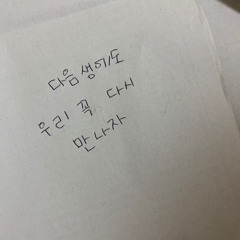 다음생에도
우리 꼭 다시
만나자